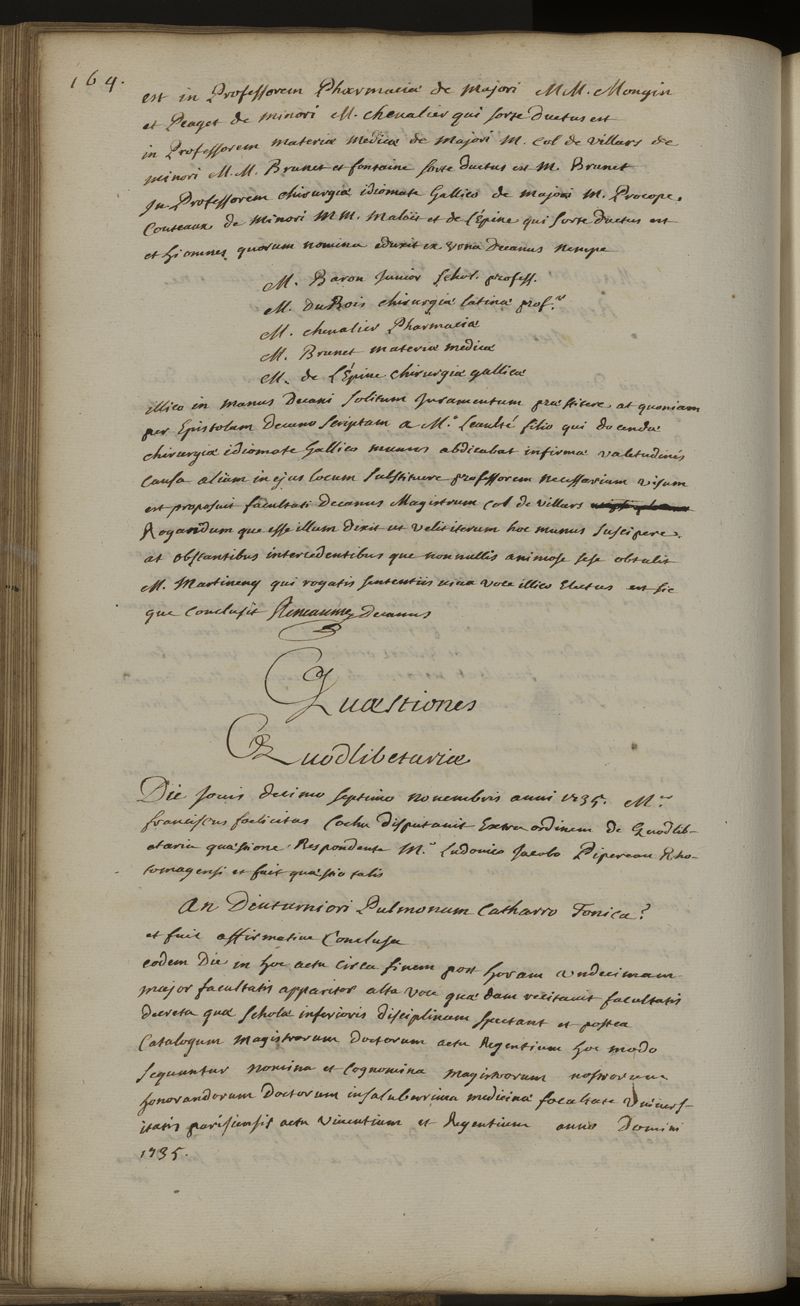 164.
est in Professorem Pharmaciæ de majori MM. Mongin
et Peaget de minori M. chevalier qui sorte ductus est
in Professorem materiæ medicæ de majori M. Col de villars de
minori M.M. Brunet et fontaine sorte ductus est M. Brunet
In Professorem chirurgiæ idiomate Gallico de majori M. Procope.
Couteaux de minori MM. Maloët et de l'Epine qui sorte ductus est
et hi omnes quorum nomina eduxit ex urna Decanus nempe
M. Baron Junior Schol. profess.
M. DuBois chirurgiæ latinæ prof.r
M. chevalier Pharmaciæ
M. Brunet materiæ medicæ
M. de L'Épine chirurgiæ gallicæ
illico in manus Decani solitum Juramentum præstitere. at quoniam
per Epistolam Decano scriptam a M.o Leaulté filio qui docendæ
chirurgiæ idiomate Gallico munus abdicabat infirmæ valetudinis
causa alium in ejus locum substituere professorem necessarium visum
est proposuit facultati Decanus Magistrum Col de villars
Rogandum que esse illum dixit ut velit iterum hoc munus suscipere.
at obstantibus intercedentibus que non nullis animose sese obtulit
M. Martinenq qui rogatis sententiis una voce illico Electus est sic
que conclusit Reneaume Decanus
Quæstiones
Quodlibetariæ
Die Jovis decimo septimo novembris anni 1735. M.r
franciscus foelicitas Cochu disputavit Extra ordinem de Quodlib-
etaria quæstione. Respondente M.o Ludovico Jacobo Pipereau Rho-
tomagensi et fuit quæstio talis
An Diuturniori Pulmonum Catharro Tonica?
et fuit affirmative Conclusa
eodem Die in hoc actu circa finem post horam undecimam
major facultatis apparitor alta voce quædam recitavit facultatis
decreta quæ Scholæ inferioris disciplinam spectant et postea
Catalogum Magistrorum Doctorum actu Regentium hoc modo
sequuntur nomina et Cognomina magistrorum nostrorum
honorandorum Doctorum in saluberrima medicinæ facultate Univers-
itatis parisiensis actu viventium et Regentium anno Domini
1735.